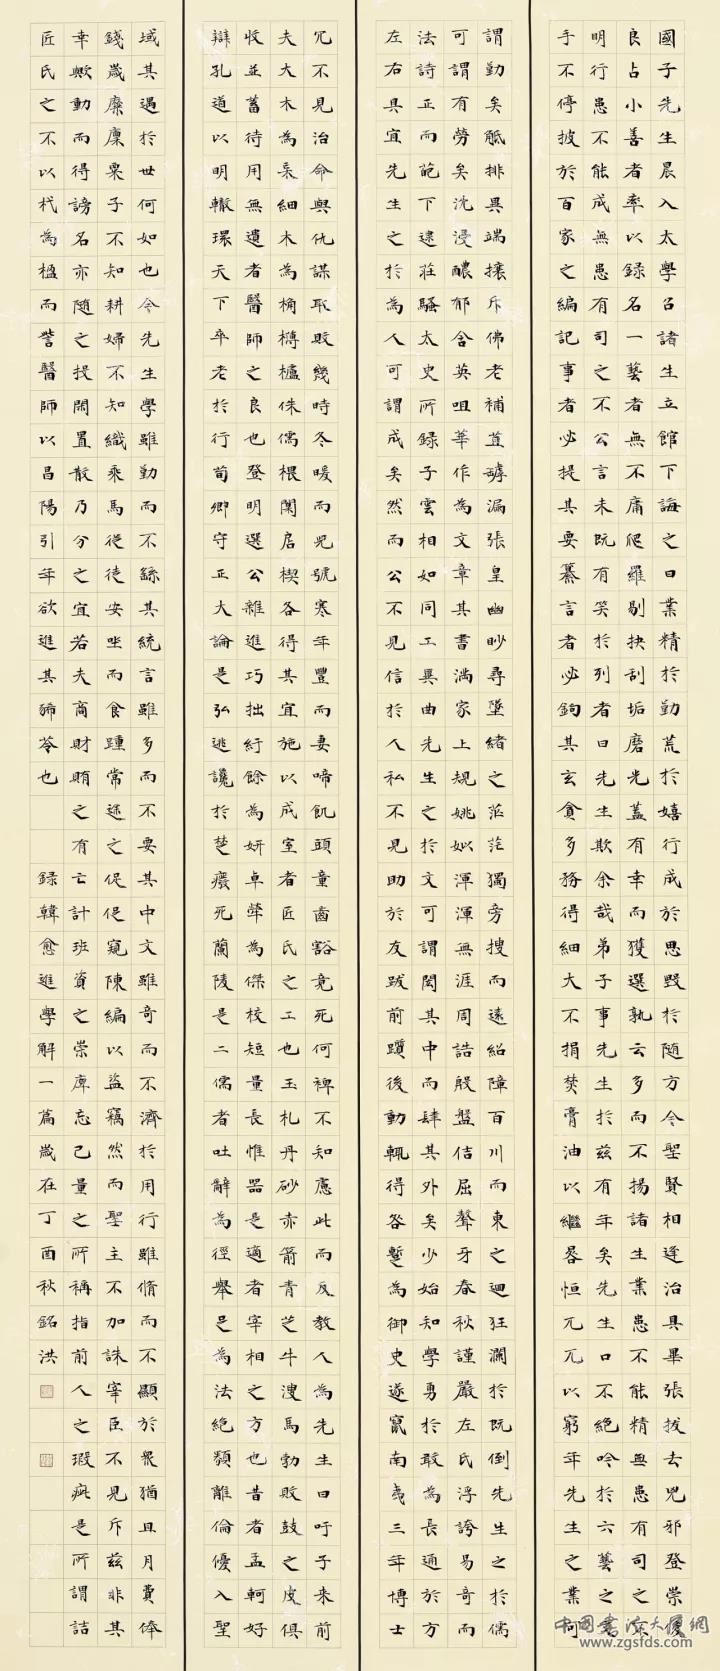 國子先生晨入太學召諸生立館下誨之曰業精於勤荒於嬉行成於思毀於隨方今聖賢相逢治具畢張拔去兇邪登崇俊
良占小善者率以錄名一藝者無不庸爬羅剔抉刮垢磨光蓋有幸而獲選孰云多而不揚諸生業患不能精無患有司之不
明行患不能成無患有司之不公言未既有笑於列者曰先生欺余哉弟子事先生於茲有年矣先生口不絕吟於六藝之文
手不停披於百家之編記事者必提其要纂言者必鉤其玄貪多務得細大不捐焚膏油以繼晷恒兀兀以窮年先生之業可
謂勤矣觝排異端攘斥佛老補苴罅漏張皇幽眇尋墜緒之茫茫獨旁搜而遠紹障百川而東之迴狂瀾於既倒先生之於儒
可謂有勞矣沈浸醲郁含英咀華作為文章其書滿家上規姚姒渾渾無涯周誥殷盤佶屈聱牙春秋謹嚴左氏浮誇易奇而
法詩正而葩下逮莊騷太史所錄子雲相如同工異曲先生之於文可謂閎其中而肆其外矣少始知學勇於敢為長通於方
左右具宜先生之於為人可謂成矣然而公不見信於人私不見助於友跋前躓後動輒得咎暫為御史遂竄南夷三年博士
冗不見治命與仇謀取敗幾時冬暖而兒號寒年豐而妻啼飢頭童齒豁竟死何裨不知慮此而反教人為先生曰吁子來前
夫大木為杗細木為桷欂櫨侏儒椳闑扂楔各得其宜施以成室者匠氏之工也玉札丹砂赤箭青芝牛溲馬勃敗鼓之皮俱
收並蓄待用無遺者醫師之良也登明選公雜進巧拙紆餘為妍卓犖為傑校短量長惟器是適者宰相之方也昔者孟軻好
辯孔道以明轍環天下卒老於行荀卿守正大論是弘逃讒於楚廢死蘭陵是二儒者吐辭為經舉足為法絕類離倫優入聖
域其遇於世何如也今先生學雖勤而不繇其統言雖多而不要其中文雖奇而不濟於用行雖脩而不顯於眾猶且月費俸
錢歲靡廩粟子不知耕婦不知織乘馬從徒安坐而食踵常途之促促窺陳編以盜竊然而聖主不加誅宰臣不見斥茲非其
幸歟動而得謗名亦隨之投閒置散乃分之宜若夫商財賄之有亡計班資之崇庳忘己量之所稱指前人之瑕疵是所謂詰
匠氏之不以杙為楹而訾醫師以昌陽引年欲進其豨苓也
錄韓愈進學解一篇歲在丁酉秋銘洪
中国书法大厦网
www.zgsfds.com